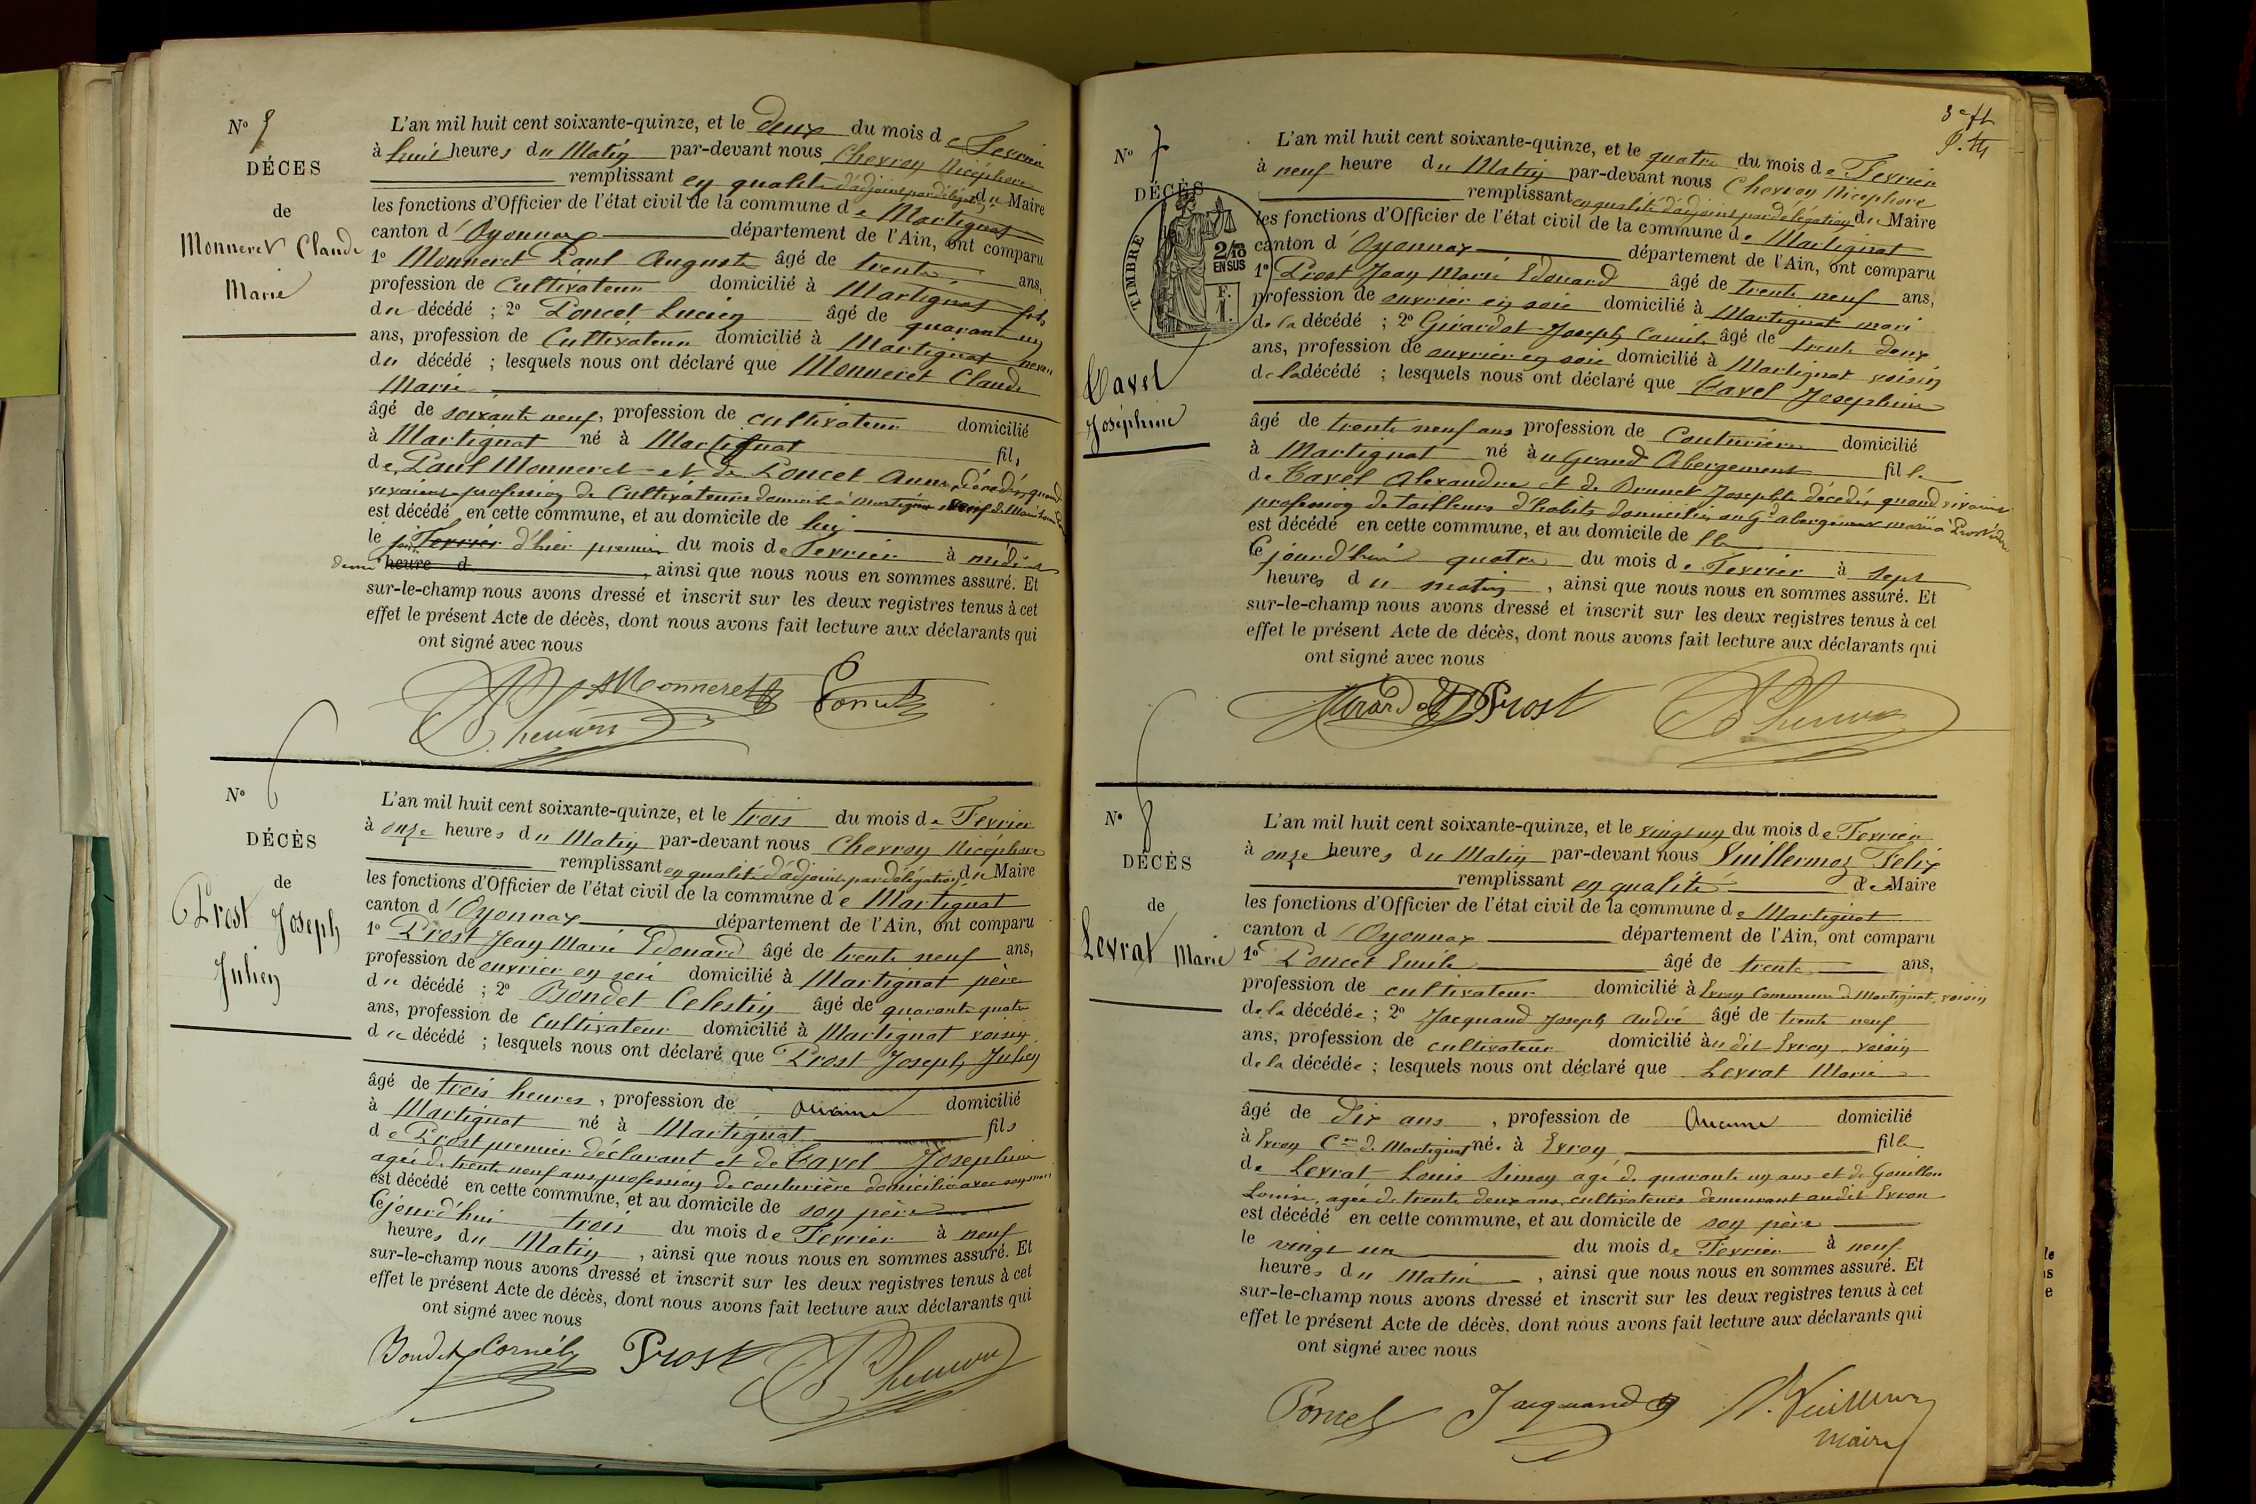 N° 5
DÉCÈS
de
Monneret Claude
Marie
L'an mil huit cent soixante-quinze, et le deux du mois de Fevrier
à huit heures du Matin par-devant nous Chevron Nicéphore
remplissant en qualité d'adjoint par délégation du Maire
les fonctions d'Officier de l'état civil de la commune de Martignat
canton d'Oyonnax département de l'Ain, ont comparu
1° Monneret Paul Auguste âgé de trente ans,
profession de Cultivateur domicilié à Martignat fils
du décédé ; 2° Poncet Lucien âgé de quarant un
ans, profession de Cultivateur domicilié à Martignat neveu
du décédé ; lesquels nous ont déclaré que Monneret Claude
Marie
âgé de soixante neuf, profession de cultivateur domicilié
à Martignat né à Martignat fils
de Paul Monneret et de Poncet Anne décédés, quand
vivaient profession de Cultivateurs domicil à Martignat veuf de
est décédé en cette commune, et au domicile de lui
le jour d'hier premier du mois de Fevrier à midi et
demi heure d , ainsi que nous nous en sommes assuré. Et
sur-le-champ nous avons dressé et inscrit sur les deux registres tenus à cet
effet le présent Acte de décès, dont nous avons fait lecture aux déclarants qui
ont signé avec nous
Monneret Poncet
N° 6
DÉCÈS
de
Prost Joseph
Julien
L'an mil huit cent soixante-quinze, et le trois du mois de Fevrier
à onze heures du Matin par-devant nous Chevron Nicéphore
remplissant en qualité d'adjoint par délégation du Maire
les fonctions d'Officier de l'état civil de la commune de Martignat
canton d'Oyonnax département de l'Ain, ont comparu
1° Prost Jean Marie Edouard âgé de trente neuf ans,
profession de ouvrier en soie domicilié à Martignat père
du décédé ; 2° Bondet Celestin âgé de quarante quatre
ans, profession de Cultivateur domicilié à Martignat voisin
du décédé ; lesquels nous ont déclaré que Prost Joseph Julien
âgé de trois heures, profession de aucune domicilié
à Martignat né à Martignat fils
de Prost premier déclarant et de Tavel Josephine
agée de trente neuf ans, profession de couturière domiciliée avec son mari
est décédé en cette commune, et au domicile de son père
Cejourd'hui trois du mois de Fevrier à neuf
heures du Matin, ainsi que nous nous en sommes assuré. Et
sur-le-champ nous avons dressé et inscrit sur les deux registres tenus à cet
effet le présent Acte de décès, dont nous avons fait lecture aux déclarants qui
ont signé avec nous
Bondet Prost
N° 7
DÉCÈS
TIMBRE
2/10
EN SUS
Tavel
Joséphine
L'an mil huit cent soixante-quinze, et le quatre du mois de Fevrier
à neuf heure du Matin par-devant nous Chevron Nicephore
remplissant en qualité d'adjoint par délégation du Maire
les fonctions d'Officier de l'état civil de la commune de Martignat
canton d'Oyonnax département de l'Ain, ont comparu
1° Prost Jean Marie Edouard âgé de trente neuf ans,
profession de ouvrier en soie domicilié à Martignat mari
de la décédé ; 2° Girardot Joseph Camile âgé de trente deux
ans, profession de ouvrier en soie domicilié à Martignat voisin
de la décédé ; lesquels nous ont déclaré que Tavel Josephine
âgé de trente neuf ans profession de Couturière domicilié
à Martignat né au Grand Abergement fille
de Tavel Alexandre et de Brunet Josephte décédés, quand vivaient
profession de tailleurs d'habits domiciliés au Gd abergement mariée à Prost
est décédé en cette commune, et au domicile de elle
Cejourd'hui quatre du mois de Fevrier à sept
heures du matin, ainsi que nous nous en sommes assuré. Et
sur-le-champ nous avons dressé et inscrit sur les deux registres tenus à cet
effet le présent Acte de décès, dont nous avons fait lecture aux déclarants qui
ont signé avec nous
Girardot Prost
N° 8
DÉCÈS
de
Levrat Marie
L'an mil huit cent soixante-quinze, et le vingt un du mois de Fevrier
à onze heures du Matin par-devant nous Vuillermoz Félix
remplissant en qualité de Maire
les fonctions d'Officier de l'état civil de la commune de Martignat
canton d'Oyonnax département de l'Ain, ont comparu
1° Poncet Emile âgé de trente ans,
profession de cultivateur domicilié à Evron Commune de Martignat, voisin
de la décédée ; 2° Jacquand Joseph André âgé de trente neuf
ans, profession de cultivateur domicilié au dit Evron voisin
de la décédée ; lesquels nous ont déclaré que Levrat Marie
âgé de dix ans, profession de Aucune domicilié
à Evron Cne de Martignat née à Evron fille
de Levrat Louis Simon agé de quarante un ans et de Gouillon
Louise, agée de trente deux ans, cultivateurs demeurant audit Evron
est décédé en cette commune, et au domicile de son père
le vingt un du mois de Fevrier à neuf
heures du Matin, ainsi que nous nous en sommes assuré. Et
sur-le-champ nous avons dressé et inscrit sur les deux registres tenus à cet
effet le présent Acte de décès, dont nous avons fait lecture aux déclarants qui
ont signé avec nous
Poncet Jacquand F. Vuillermoz
maire